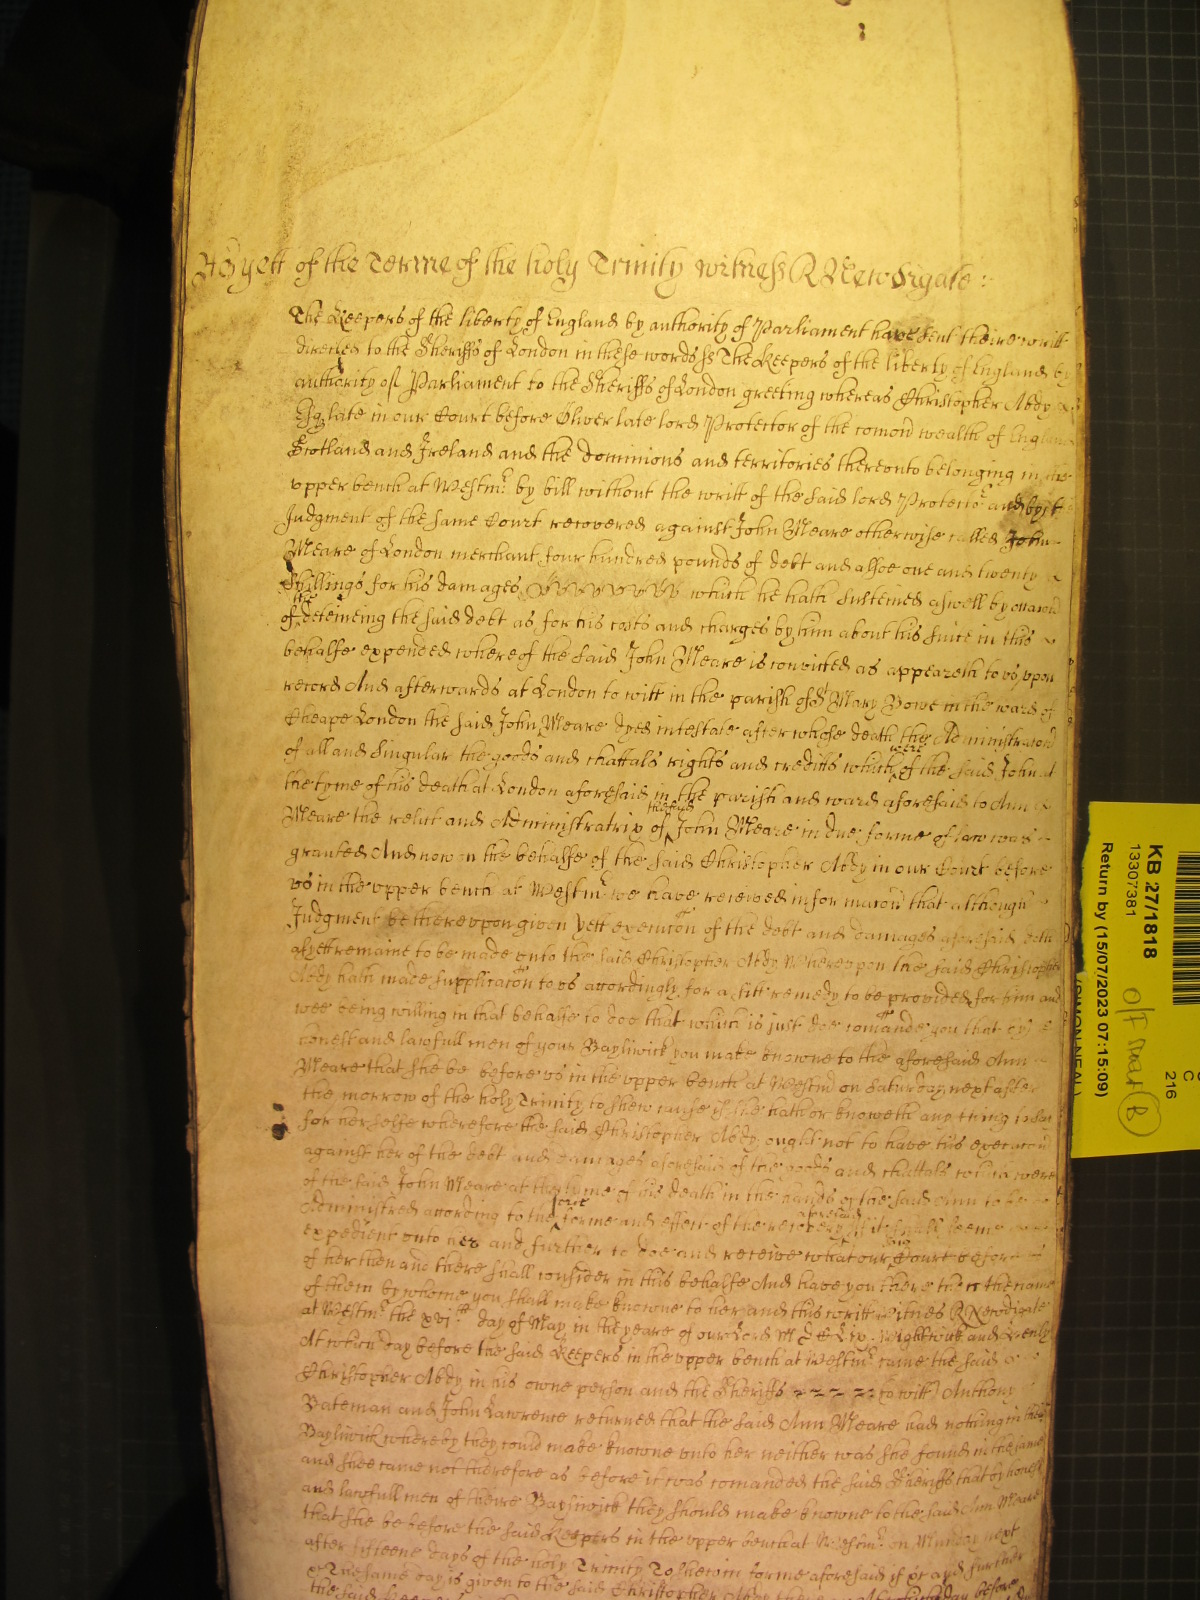 As yett of the Terme of the holy Trinity witness R Newdigate :
The Keepers of the liberty of England by authority of Parliament have sent theire writt
directed to the Sheriffs of London in these words ss The Keepers of the liberty of England by
authority of Parliament to the Sheriffs of London greeting whereas Christopher Abdy
Esq late in our Court before Oliver late lord Protector of the comon wealth of England
Scotland and Ireland and the dominions and territories thereonto belonging in the
vpper bench at Westmr by bill without the writt of the said lord Protector and by the
Judgment of the same Court recovered against John Meare otherwise called John
Meare of London merchant four hundred pounds of debt and alsoe one and twenty
shillings for his damages which he hath susteined aswell by
of the deteineing the said debt as for his costs and charges by him about his suite in this
behalfe expended whereof the said John Meare is convicted as appeareth to vs vpon
record And afterwards at London to witt in the parish of St Mary Bowe in the ward of
Cheape London the said John Meare dyed intestate after whose death the Administracon
of all and singular the goods and chattals rights and creditts which were of the said John at
the tyme of his death at London aforesaid in the parish and ward aforesaid to Ann
Meare the relict and Administratrix of the said John Meare in due forme of law was
granted And now on the behalfe of the said Christopher Abdy in our Court before
vs in the vpper bench at Westmr we have received informacon that although
Judgment be therevpon given yett execucon of the debt and damages aforesaid doth
as yett remaine to be made vnto the said Christopher Abdy Wherevpon the said Christopher
Abdy hath made supplicacon to vs accordingly for a fitt remedy to be provided for him and
wee being willing in that behalfe to doe that which is just doe comande you that by
honest and lawfull men of your Bayliwick you make knowne to the aforesaid Ann
Meare that she be before vs in the vpper bench at Westmr on Saturday next after
the morrow of the holy Trinity to shew cause if she hath or knoweth any thing to say
for her selfe wherefore the said Christopher Abdy ought not to have his execucon
against her of the debt and damages aforesaid of the goods and chattals which were
of the said John Meare at the tyme of his death in the hands of the said Ann to be
Administred according to the force forme and effect of the recovery aforesaid if it shall seeme
expedient vnto her and further to doe and receive what our said Court before
of her then and there shall consider in this behalfe And have you there then the name
of them by whome you shall make knowne to her and this writt Witnes R Newdigate
at Westmr the xvith day of May in the yeare of our Lord MDCLix. Wightwick and Henly
At which day before the said Keepers in the vpper bench at Westmr came the said
Christopher Abdy in his owne person and the Sheriffs to witt Anthony
Bateman and John Lawrence returned that the said Ann Meare had nothing in theire
Bayliwick whereby they could make knowne vnto her neither was she found in the same
and shee came not therefore as before it was comanded the said Sheriffs that by honest
and lawfull men of theire Bayliwick they should make knowne to the said Ann Meare
that she be before the said Keepers in the vpper bench at Westmr on Munday next
after fifteene days of the holy Trinity To shew in forme aforesaid if &c and further
&c The same day is given to the said Christopher Abdy there &c At which day before
KB 27/1818
13307381
Return by (15/07/2023 07:15:09)
(SIMON NEAL)
216
C